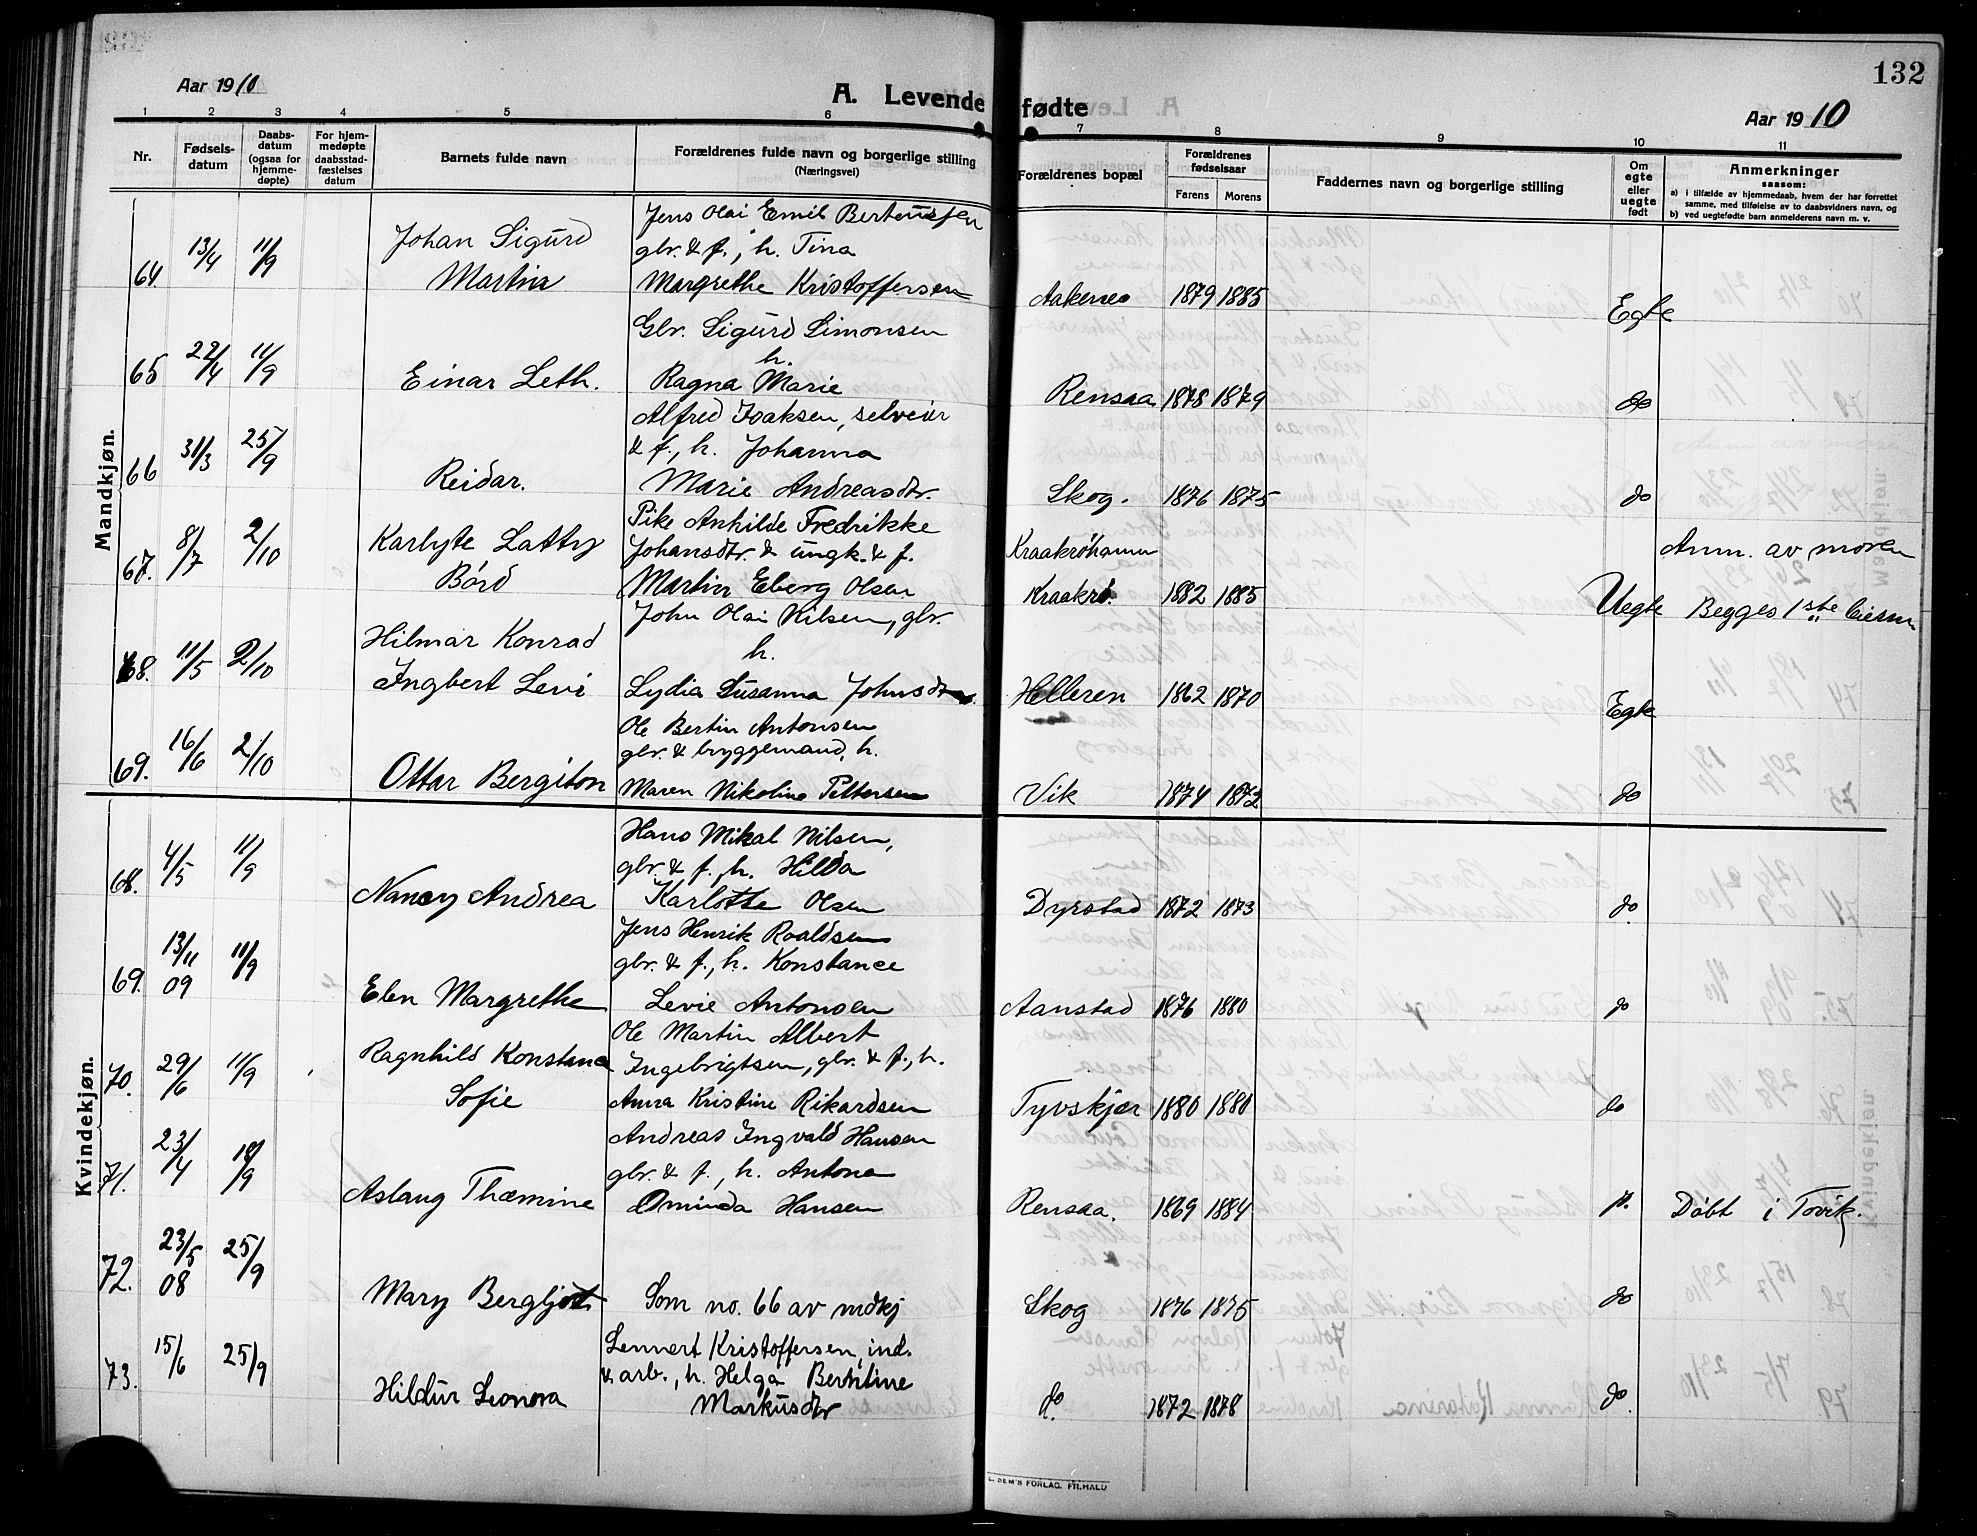 132
Aar 1910
A. Levende fødte
Aar 1910
1 2 3 4 5 6 7 8 9 10 11
Nr.
Fødsels-
datum
Daabs-
datum
(ogsaa for
hjemme-
døpte)
For hjem-
medøpte
daabsstad-
fæstelses
datum
Barnets fulde navn
Forældrenes fulde navn og borgerlige stilling
(Næringsvei)
Forældrenes bopæl
Forældrenes
fødselsaar
Farens Morens
Faddernes navn og borgerlige stilling
Om
egte
eller
uegte
født
Anmerkninger
saasom:
a) i tilfælde av hjemmedaab, hvem der har forrettet
samme, med tilføielse av to daabsvidners navn, og
b) ved uegtefødte barn anmelderens navn m. v.
Mandkjøn.
Jens Olai Emil Berteussen
13/4 11/9 Johan Sigurd glbr. & f., h. Tina
64 Martin Margrethe Kristoffersen Aakernes 1879 1885 Egte
Gbr. Sigurd Simonsen
22/4 11/9 h.
65 Einar Leth. Ragna Marie Rensaa 1878 1879 do
Alfred Isaksen, selveier
31/3 25/9 & f., h. Johanna
66 Reidar. Marie Andreasdtr. Skog. 1876 1875 do
Pike Anhilde Fredrikke
8/7 2/10 Karlyte Lattry Johansdtr. & ungk. & f. Kraakrøhamn Anm. av moren
67. Bórd Martin Eberg Olsen Kraakrø. 1882 1885 Uegte Begges 1ste
John Olai Nilsen, gbr.
11/5 2/10 Hilmar Konrad h.
68. Ingbert Levi Lydia Susanna Johnsdtr. Helleren 1862 1870 Egte
Ole Bertin Antonsen
16/6 2/10 gbr. & bryggemand, h.
69. Ottar Bergiton Maren Nikoline Pettersen Vik 1874 1872 do
Kvindekjøn.
Hans Mikal Nilsen,
4/5 11/9 gbr. & f., h. Hilda
68. Nancy Andrea Karlotte Olsen Dyrstad 1872 1873 do.
Jens Henrik Roaldsen
13/11 11/9 gbr. & f., h. Konstance
69. 09 Elen Margrethe Levie Antonsen Aanstad 1876 1880 do
Ole Martin Albert
29/6 11/9 Ragnhild Konstance Ingebrigtsen, gbr. & f., h.
70. Sofie Anna Kristine Rikardsen Tyvskjær 1880 1880 do
Andreas Ingvald Hansen
23/4 18/9 gbr. & f., h. Antona
71. Aslaug Thæmine Ominda Hansen Rensaa. 1869 1884 do. Døbt i Tovik.
23/5 25/9
72. 08 Mary Bergljot Som no. 66 av mdkj Skog 1876 1875 do
Lennert Kristoffersen, ind.
15/6 25/9 & arb., h. Helga Berntine
73. Hildur Leonora Markusdtr do 1872 1878 do.
SEM'S FORLAG, FR.HALD